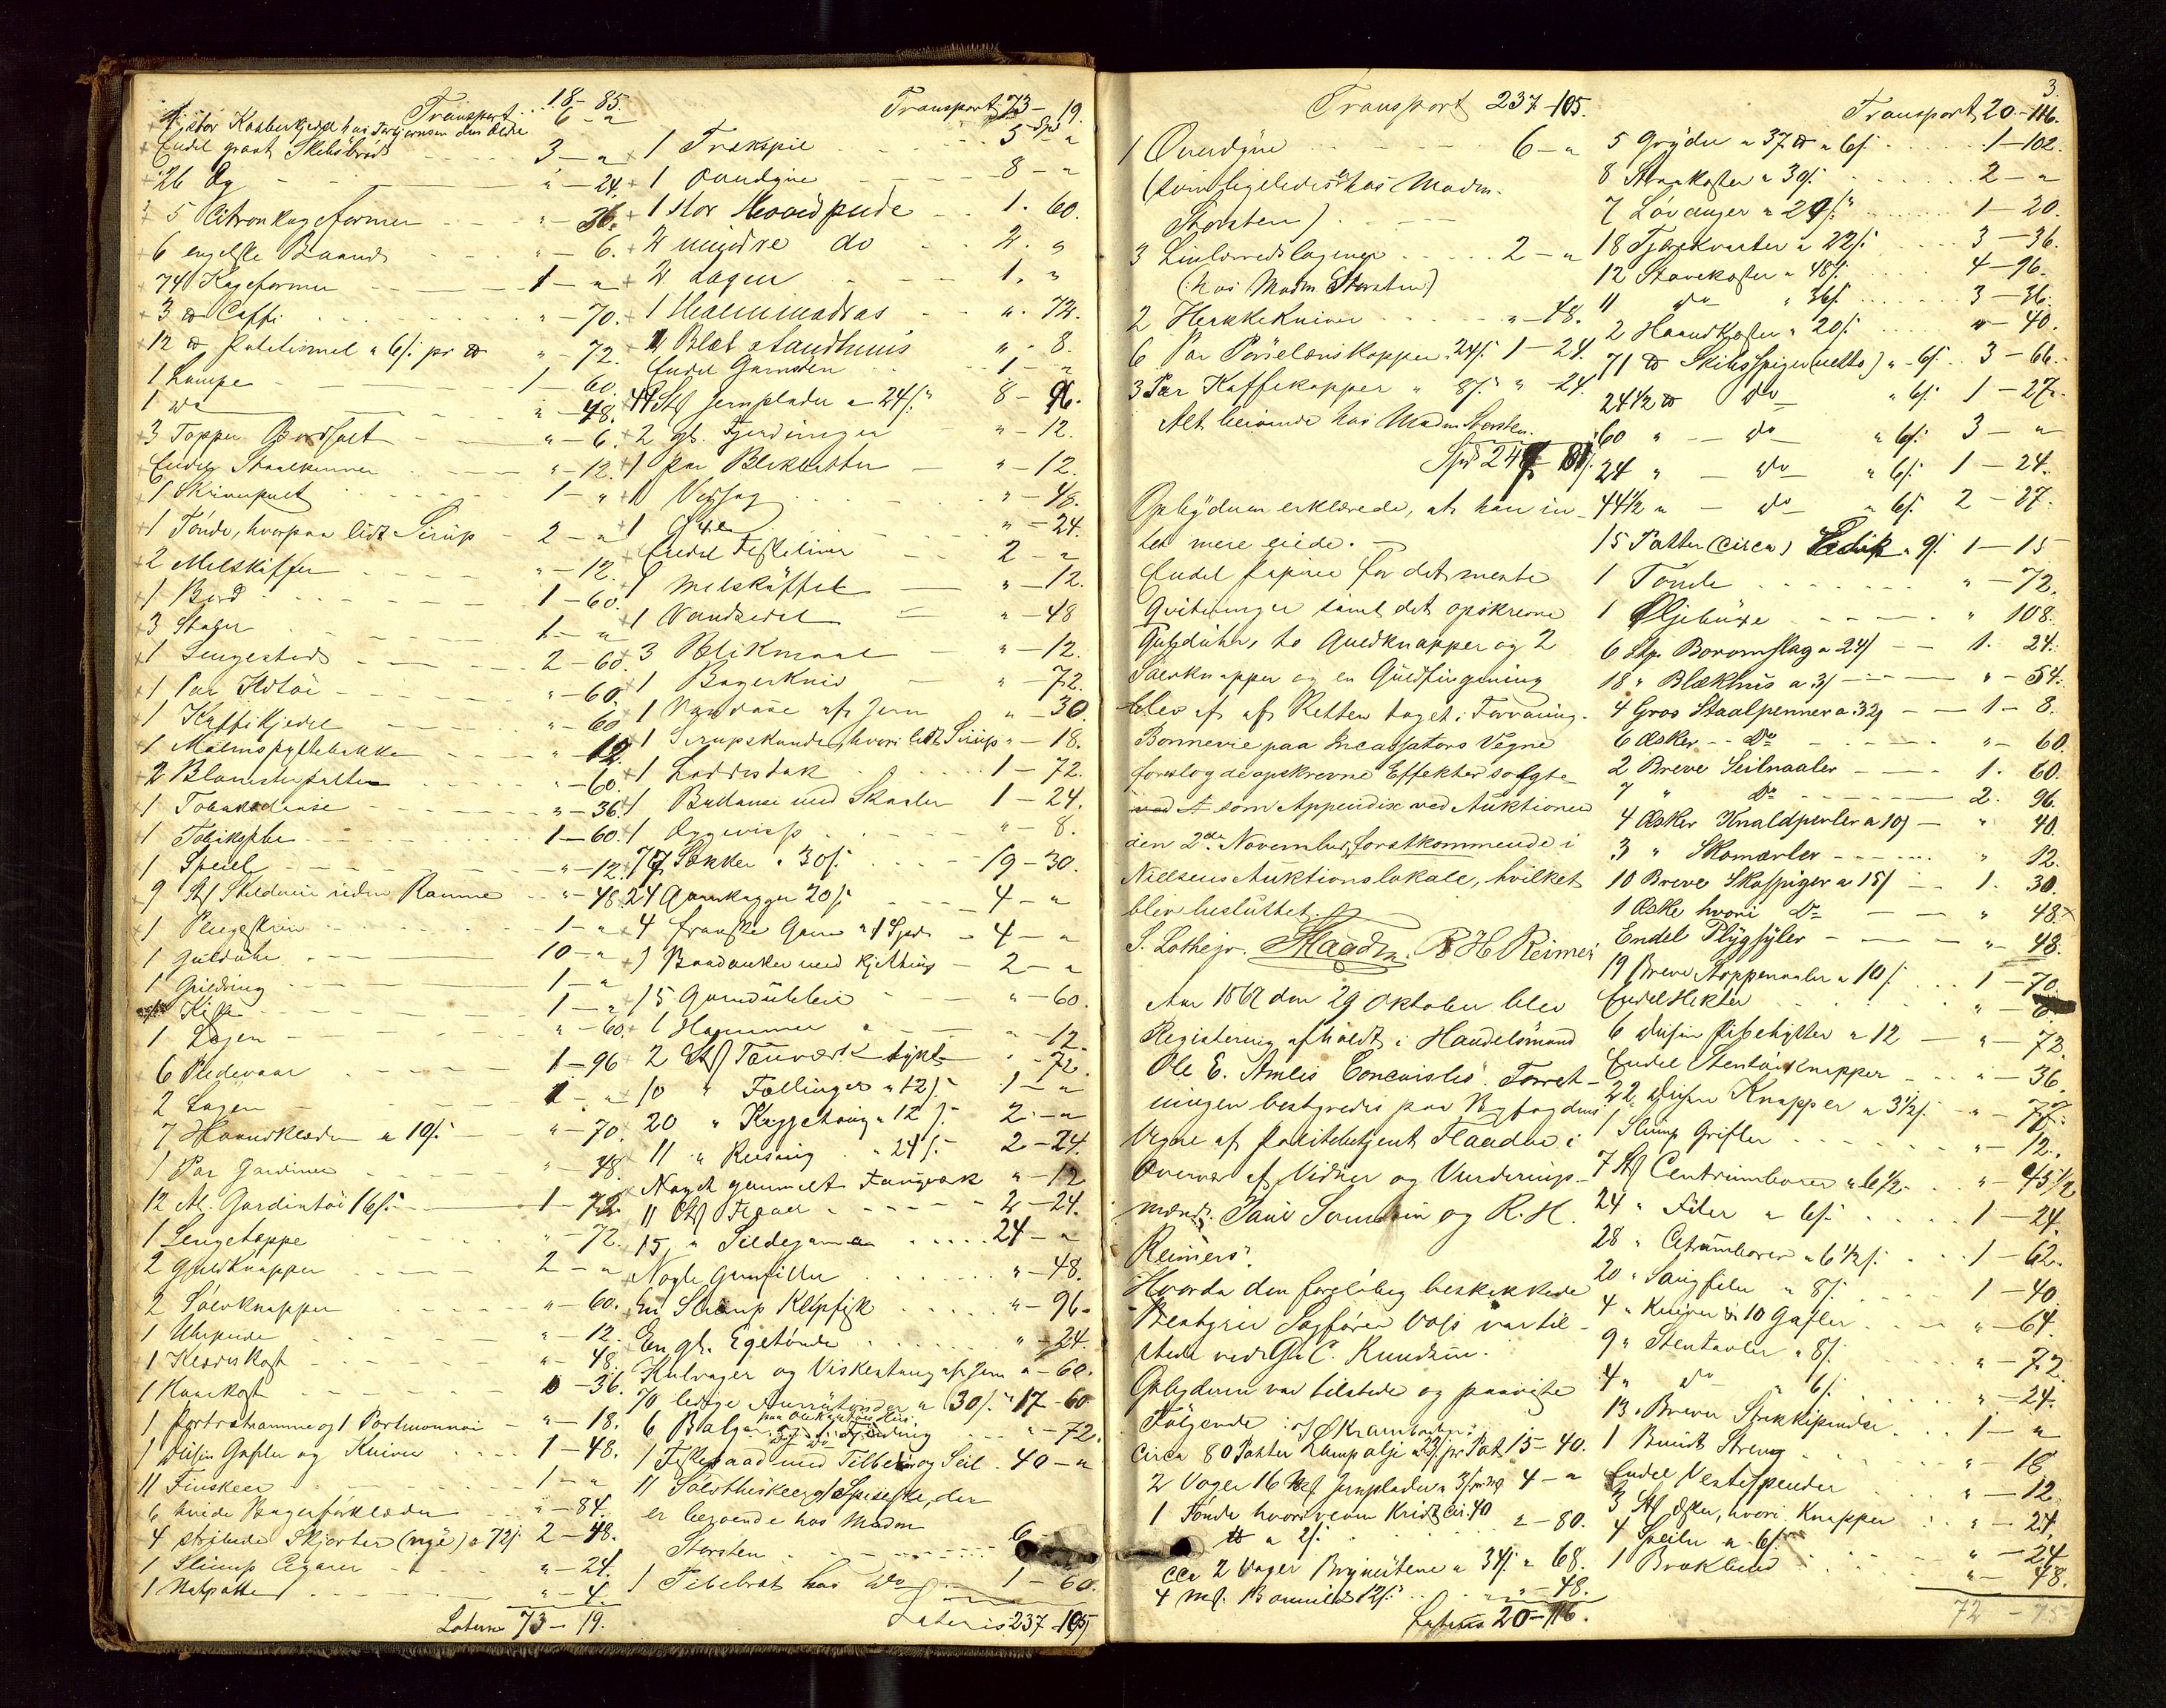 Transport 18-85.
1 stor Kobberkjedel hos Torgjernsen den Ældre 6-"
Endel grovt Skibsbrød 3-"
26 Æg "-24.
5 Citronkageformer "-36.
6 engelske Baand "-6.
74 Kageformer 1-"
3 ℔ Caffi "-70.
12 ℔ Potetismel a 6/: pr ℔ "-72.
1 Lampe 1-60.
1 do "-48.
3 Topper Bordsalt "-6.
Endel Staalpenner "-12.
1 Skrivepult 1-"
1 Tønde, hvorpaa lidt Sirup 2-"
2 Melskuffer "-12.
1 Bord 1-60.
3 Stager 1-"
1 Sengested 2-60.
1 Par Ildtøi "-60.
1 Kaffikjedel "-60.
1 Malmspyttebakke "-12.
2 Blomsterpotter "-60.
1 Tobaksdaase "-36.
1 Tobakspibe 1-60.
1 Speil "-12.
9 Stk Skilderier uden Ramme "-48.
1 Pengeskrin 1-"
1 Gulduhr 10-"
1 Guldring 1-"
Kiste 1-"
1 Lagen "-60.
6 Pudevaar 1-96
2 Lagen 1-"
7 Haandklæder a 10/: "-70.
1 Par Gardiner "-48.
12 Al. Gardintøi 16/: 1-72.
1 Sengetæppe "-72.
2 Guldknapper 2-"
2 Sølvknapper "-60.
1 Uhrpude "-12.
1 Klædeskost "-48.
1 Haarkost "-36.
1 Portrætramme og 1 Portmonnai "-18.
1 Dusin Gafler og Kniver 1-48.
11 Tinskeer 1-"
6 hvide Bagerforklæder "-84.
4 stribede Skjorter (nye) a 72/: 2-48.
1 Slump Cigarer "-24.
1 Natpotte "-4.
Lateris 73-19.
Transport 73-19.
1 Trækspil 5 Spd "
1 Overdyne 8-"
1 stor Hovedpude 1. 60.
2 mindre do 2. "
2 Lagen 1. "
1 Halmmadras ". 72.
2 Blæk standhuus ". 8.
Endel Garnsten 1-"
44 Stk Jernplader a 24/: 8-96.
2 gl. Fjerdinger "-12.
1 par Blekbøtter "-12.
1 Vedsag "-48.
1 Øxe "-24.
Endel Fiskeliner 2-"
1 Melskuffel "-12.
1 Vandsedel "-48
3 Blikmaal "-12.
1 Bagerkniv "-72.
1 Vandøse af Jern "-30
1 Sirupskande, hvori lidt Sirup "-18.
1 1-72.
1 Ballance med Skaaler 1-24.
1 Æggevisp "-8.
77 Sækker a 30/: 19-30.
24 Garnkagger 20/: 4-"
4 franske Garn a 1 Spd. 4-"
1 Baadanker med Kjetting 2-"
15 Garndubbel "-60.
1 Hammer "-12.
2 Stk Tougværk tykt "-72.
10 " Fællinger a 12/: 1-"
20 " Kaggetoug a 12/: 2-"
11 " Reising " 24/: 2-24.
Noget gammelt Tougværk "-12
11 Stk Træer 2-24.
15 " Sildegarn 24-"
Nogle Garnfiller "-48.
En Slump Klipfisk "-96-
En gl. Egetønde "-24.
Kulrager og Viskestang af Jern "-60.
70 ledige Murrætønder a 30/: 17-60
6 Baljer "-72.
1 Fiskebaad med Tilbehør og Seil 40-"
11 Sølvtheskeer og 1 Spiseske, der
er beroende hos Madm
Storsten 6-
1 Tebebræt hos do 1-60.
Lateris 237-105
Transport 237-105.
1 Overdyne 6-"
(som ligeledes er hos Madm.
Storsten)
3 Linlærredslagener 2-"
(hos Madm Storsten)
2 Hekkekniver "-48.
6 Par Porselænskopper a 24/: 1-24.
3 Par Kaffekopper " 8/: "-24.
Alt beroende hos Madm Storsten.
Opbyderen erklærede, at han in-
tet mere eiede.
Endel Papirer for det meste
Qvitteringer samt det opskrevne
Gulduhr, to Guldknapper og 2
Sølvknapper og en Guldfingerring
blev af Retten taget i Forvaring.
Bonnevie paa Incassators Vegne
foreslog de opskrevne Effekter solgte
som Appendix ved Auktionen
den 2den November forstkommende i
Nielsens Auktionslokale, hvilket
blev besluttet.
S. Lothejr. Flaadn. R H Reimers
Aar 1867 den 29 Oktober blev
Registrering afholdt i Handelsmand
Ole E. Amlis Concursbo. Forret-
ningen bestyredes paa Byfogdens
Vegne af Politibetjent Flaadn i
Overvær af Vidner og Vurderings-
mænd: og R. H.
Reimers.
Hvorda den foreløbig beskikkede
Bestyrer Sagfører Voss var til-
stede ved G. C. Knudsen.
Opbyderen var tilstede og paaviste
Følgende: i Krambodden
circa 80 Potter Lampolje a 23/: pr Pot 15-40.
2 Voger 16 Mk Jernplader 4-"
1 Tønde hvori revom Kridt cir. 40
℔ a 2/: "-80.
cca 2 Voger Brynestene a 34/: "-68.
4 Mk. Bomuld 12/: "-48.
Lateris 20-116.
3.
Transport 20.-116.
5 Gryder a 37 ℔ a 6/: 1-102.
8 Strækoster a 30/: 2-"
7 Løvauger a 20/: 1-20.
18 Tjærekoster a 22/: 3-36.
12 Stovekoster a 48/: 4-96.
11 do " 36/: 3-36.
2 Haandkoster " 20/: "-40.
71 ℔ Skibsspiger (netto) a 6/: 3-66.
24 1/2 ℔ do " 6/: 1-27.
60 " do " 6/: 3-"
24 " do " 6/: 1-24.
44 1/2 " do " 6/: 2-27.
15 Potter (circa) Eddik a 9/: 1-15
1 Tønde "-72.
1 Oljebøxe " 108.
6 Stp. Boromslag a 24/ 1. 24.
18 " Blækhus a 3/ "-54.
4 Gros Staalpenner a 32/ 1-8.
6 Æsker do "-60.
2 Breve Seilnaaler 1. 60.
7 " do 2. 96.
4 Æsker Knaldperler a 10/ " 40.
3 " Skomærler " 12.
10 Breve Skospiger a 15/ 1. 30.
1 Æske hvori do " 48.
Endel Plygsyler "-48.
19 Breve Stoppenaaler a 10/: 1-70.
Endel Hekter
6 Dusin Pibehytter a 12 "-72.
Endel Stentøisknapper "-36.
22 Dusin Knapper a 3 1/2/: "-77.
1 Slump Grifler "-12.
7 Stk Centrumborer a 6 1/2 "-45 1/2
24 " Filer a 6/: 1-24.
28 " Centrumborer a 6 1/2/: 1-62.
20 " Saugfiler " 8/: 1-40.
4 " Kniver & 10 Gafler "-64.
9 " Stentavler " 8/: "-72.
4 " do " 6/: "-24.
13 " Breve Strikkepinder 1-"
1 Bundt Streng "-16
Endel Vestespender "-12
3 Stk Æsker, hvori Knapper "-24.
4 Speiler a 6/: "-24
1 Brokbind "-48.
72-75